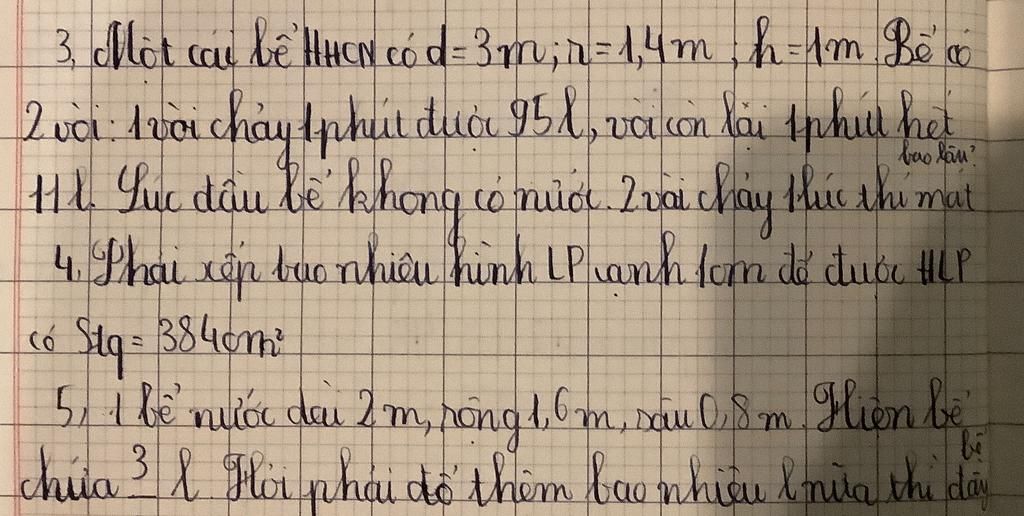 3, Một cái bể HHCN có d = 3m; r = 1,4m; h = 1m. Bể có
2 vòi: 1 vòi chảy 1 phút được 95l, vòi còn lại 1 phút hết
bao lâu?
11l. Lúc đầu bể không có nước. 2 vòi chảy 1 lúc thì mất
4, Phải xếp bao nhiêu hình LP cạnh 1cm để được HLP
có Stq = 384cm²
5, 1 bể nước dài 2m, rộng 1,6m, sâu 0,8m. Hiện bể
bể
chứa 3 l Hỏi phải đổ thêm bao nhiêu l nữa thì đầy